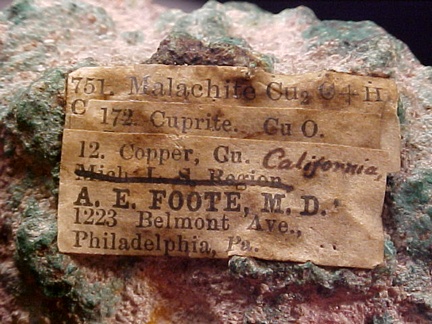 751. Malachite Cu₂ C + H
C 172. Cuprite. Cu O.
12. Copper, Cu. California,
Mich. L. S. Region
A. E. FOOTE, M. D.
1223 Belmont Ave.,
Philadelphia, Pa.